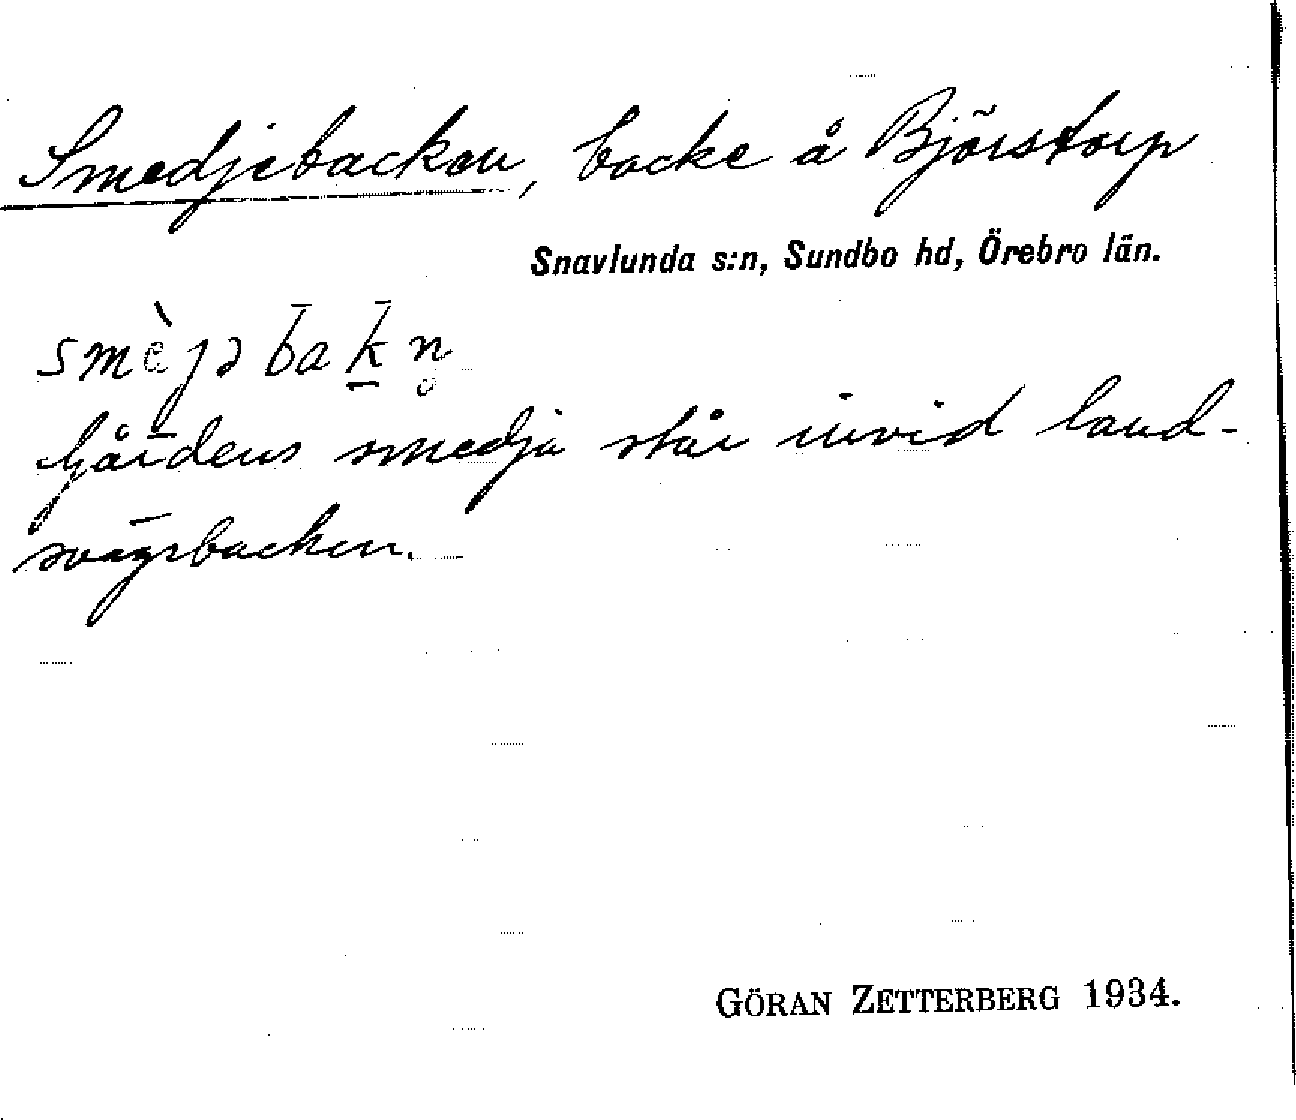 Smedjebacken, backe å Björstorp
Snavlunda s:n, Sundbo hd, Örebro län.
smèjəbak̲n̥
Gårdens smedja står invid land-
svägsbacken.
GÖRAN ZETTERBERG 1934.